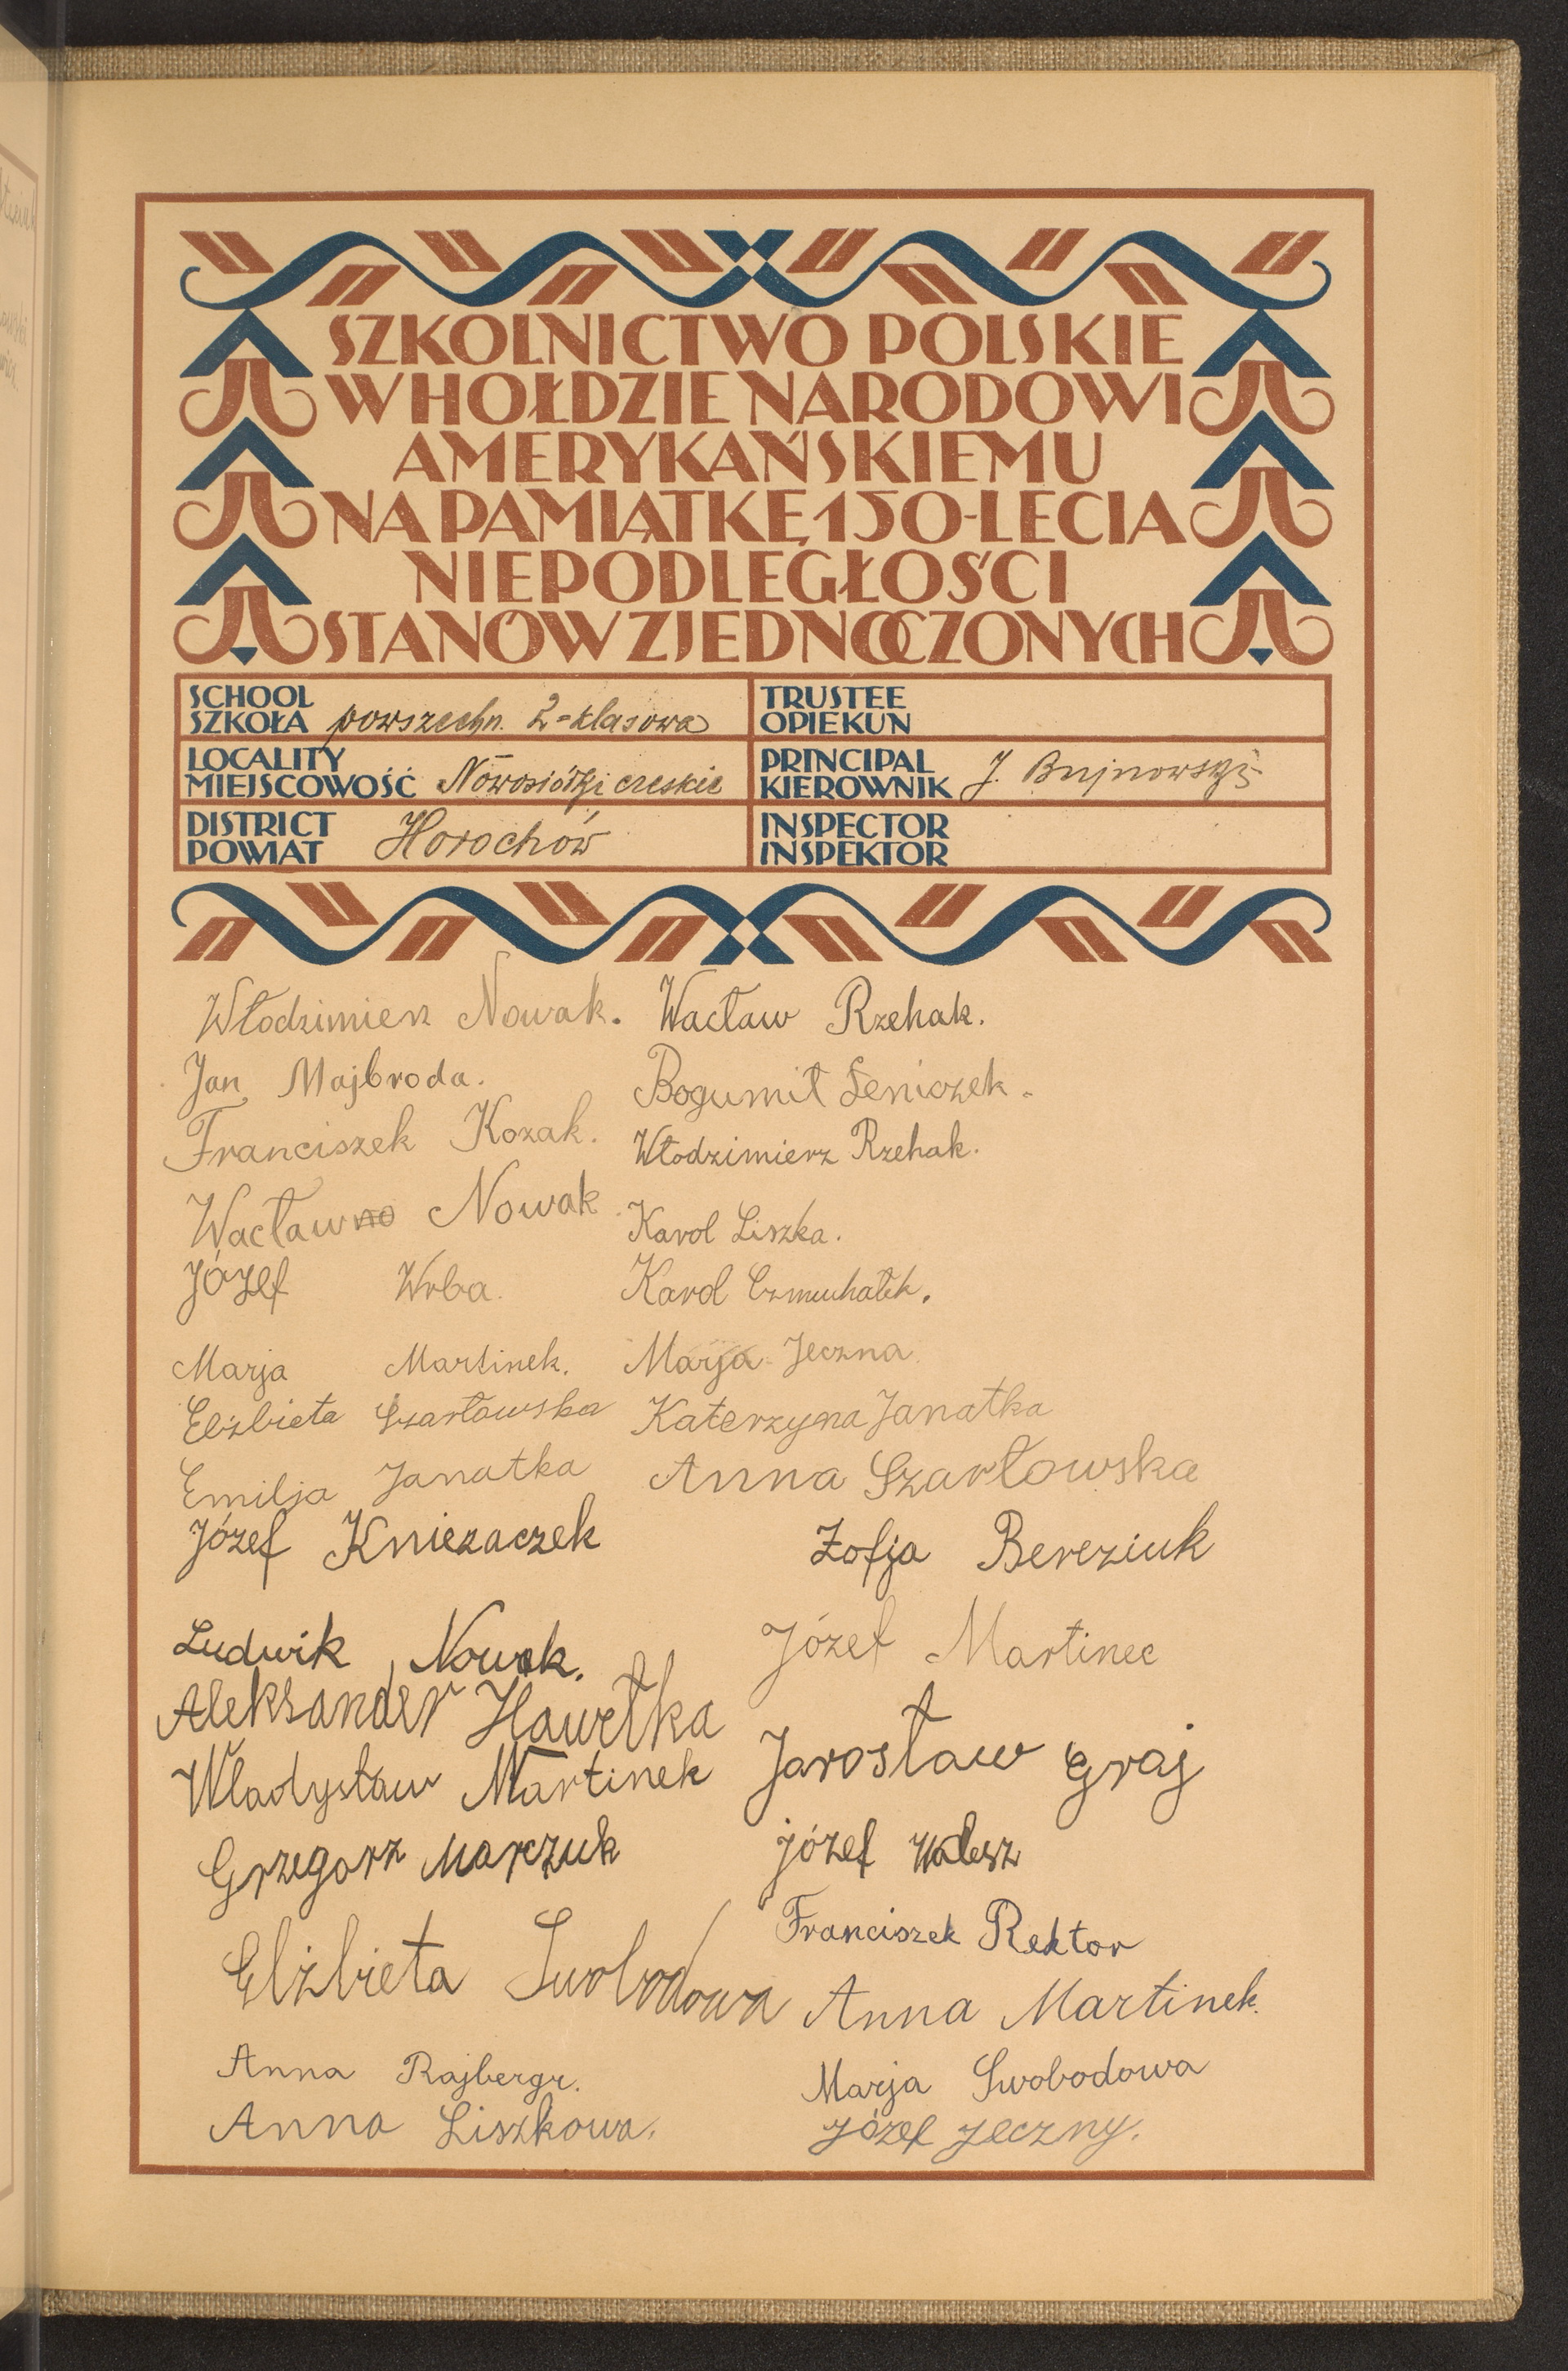 SZKOLNICTWO POLSKIE
W HOŁDZIE NARODOWI
AMERYKAŃSKIEMU
NA PAMIĄTKĘ 150-LECIA
NIEPODLEGŁOŚCI
STANÓW ZJEDNOCZONYCH
SCHOOL
SZKOŁA powszechn. 2-klasowa
TRUSTEE
OPIEKUN
LOCALITY
MIEJSCOWOŚĆ Nowosiółki czeskie
PRINCIPAL
KIEROWNIK J. Bujnowski
DISTRICT
POWIAT Horochów
INSPECTOR
INSPEKTOR
Włodzimierz Nowak. Wacław Rzehak.
Jan Majbroda. Bogumił Leniczek.
Franciszek Kozak. Włodzimierz Rzehak.
Wacław Nowak Karol Liszka.
Józef Wrba. Karol
Marja Martinek. Marja Jeczna
Elżbieta Szarłowska Katerzyna Janatka
Emilja Janatka Anna Szarłowska
Józef Kniezaczek Zofja Bereziuk
Ludwik Nowak. Józef Martinec
Aleksander Hawełka
Władysław Martinek Jarosław Graj
Grzegorz Marczuk Józef
Franciszek Rektor
Elżbieta Swobodowa Anna Martinek.
Anna Rajbergr. Marja Swobodowa
Anna Liszkowa. Józef Jeczny.